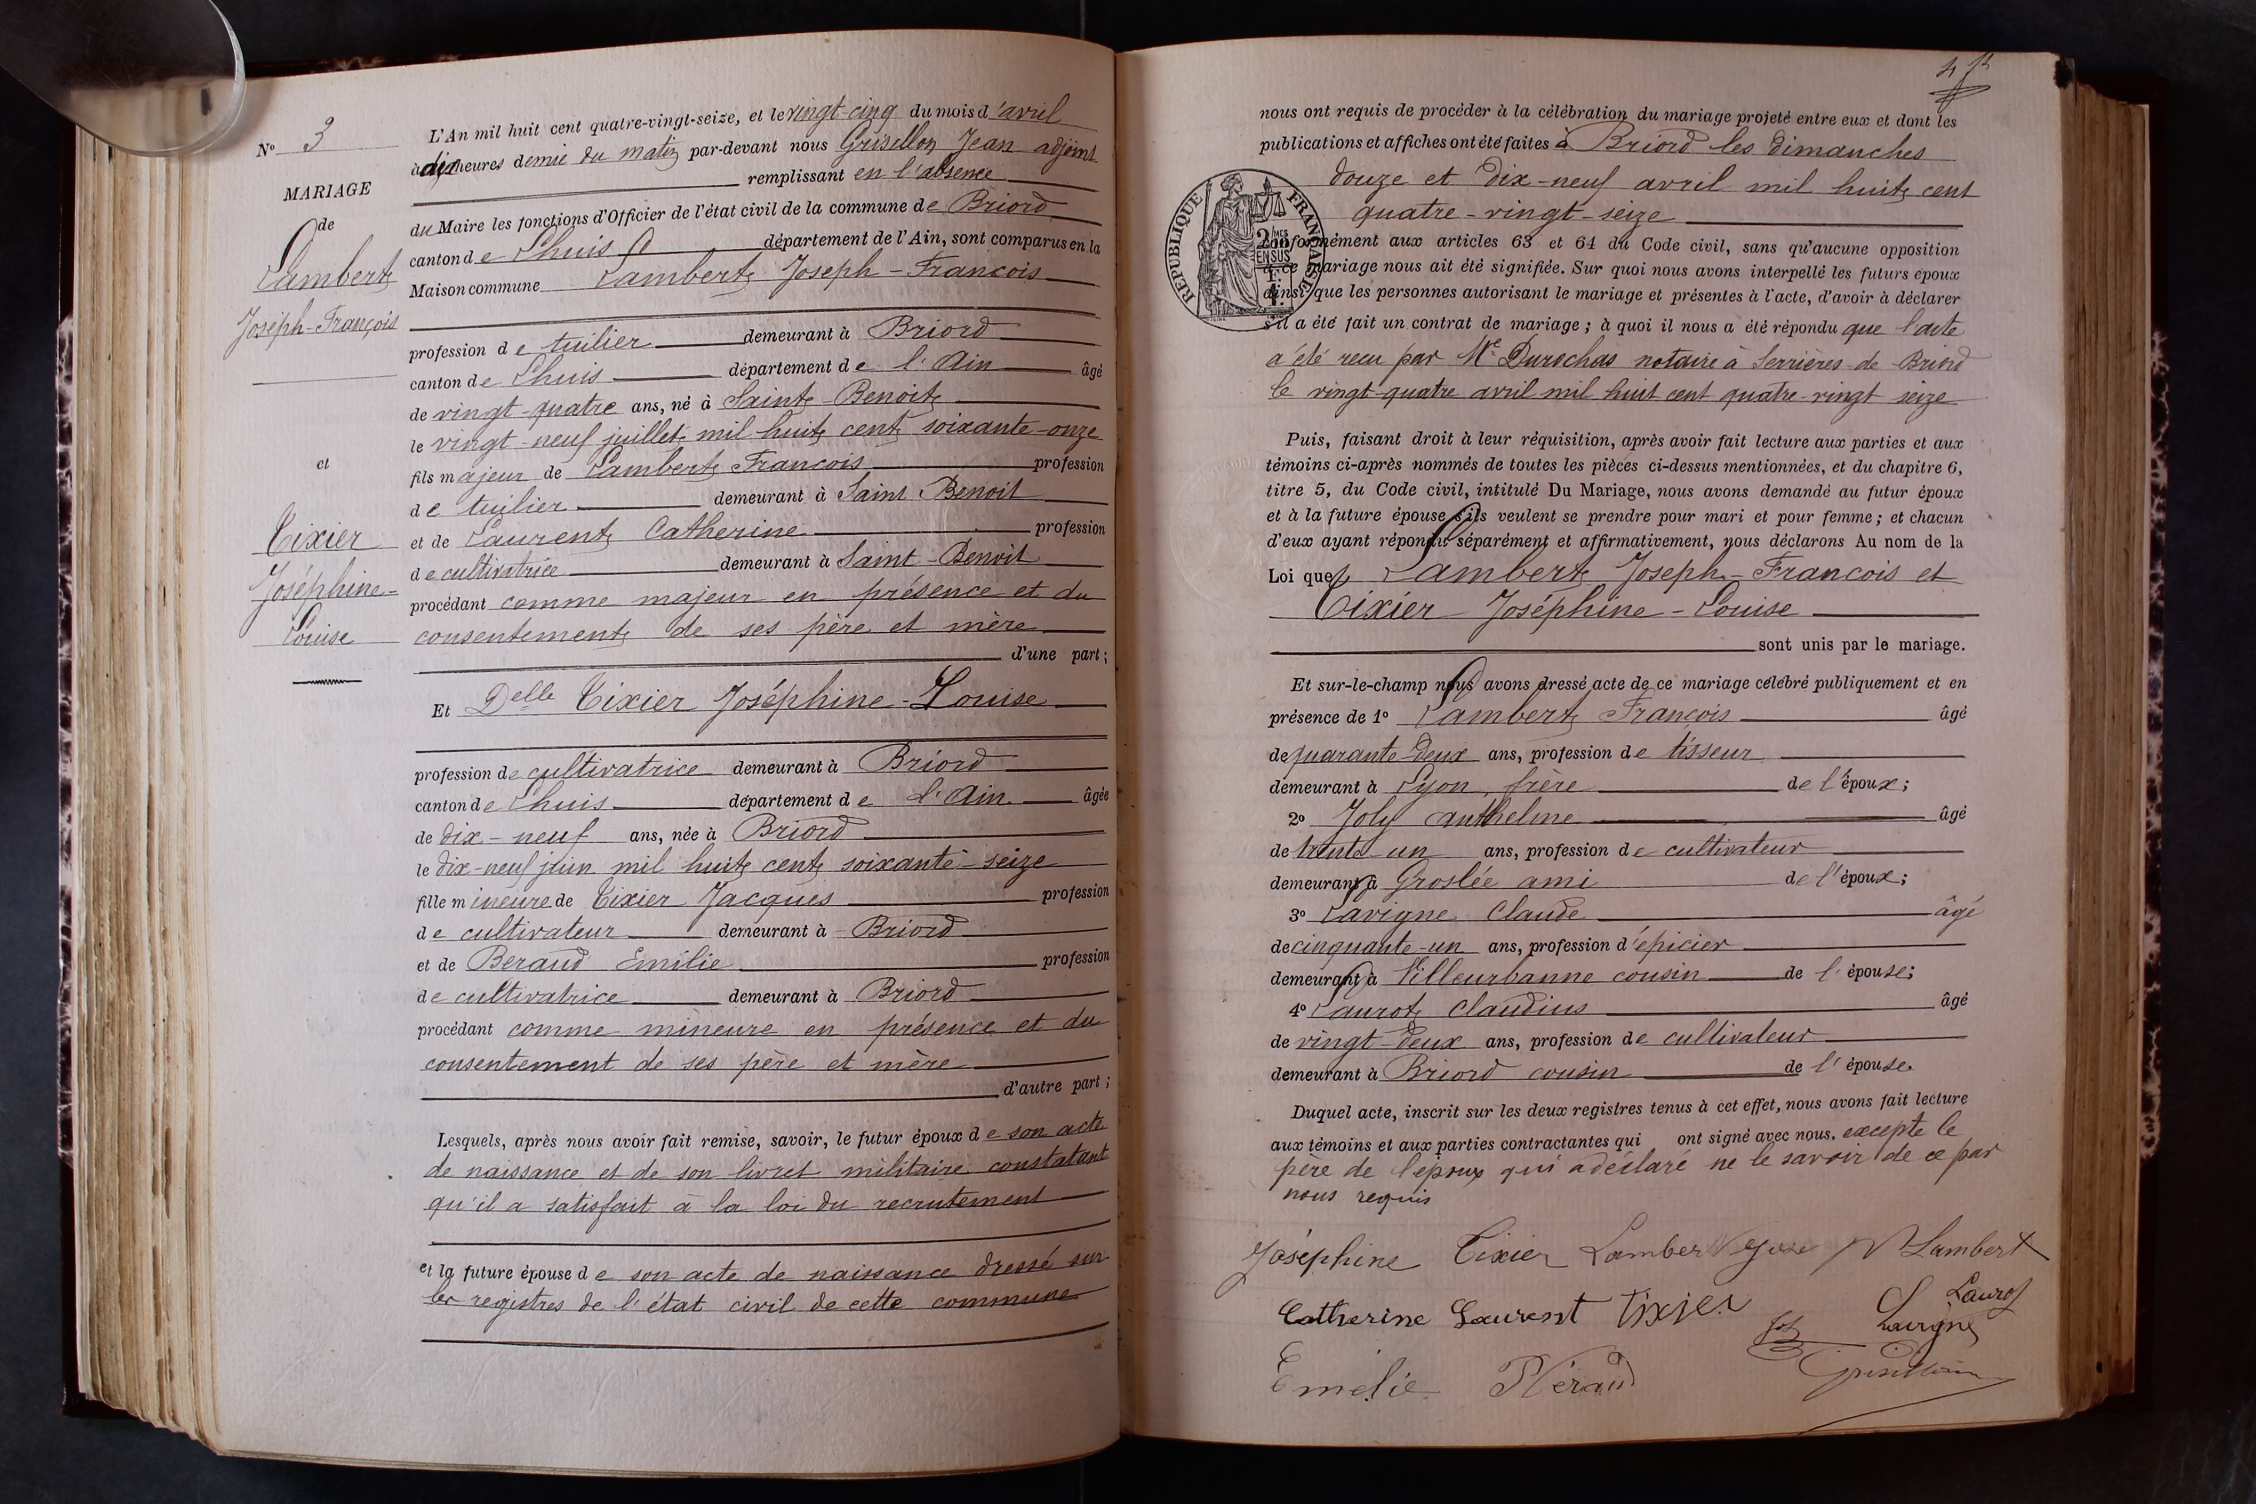 N° 3
MARIAGE
de
Lambert
Joseph-François
et
Tixier
Joséphine-
Louise
L'An mil huit cent quatre-vingt-seize, et le vingt-cinq du mois d'avril
à dix heures demie du matin par-devant nous Grisellon Jean adjoint
remplissant en l'absence
du Maire les fonctions d'Officier de l'état civil de la commune de Briord
canton de Lhuis département de l'Ain, sont comparus en la
Maison commune Lambert Joseph-François
profession de tuilier demeurant à Briord
canton de Lhuis département de l'Ain âgé
de vingt-quatre ans, né à Saint-Benoit
le vingt-neuf juillet mil huit cent soixante-onze
fils majeur de Lambert François profession
de tuilier demeurant à Saint Benoit
et de Laurent Catherine profession
de cultivatrice demeurant à Saint-Benoit
procédant comme majeur en présence et du
consentement de ses père et mère
d'une part;
Et Delle Tixier Joséphine-Louise
profession de cultivatrice demeurant à Briord
canton de Lhuis département de l'Ain âgée
de dix-neuf ans, née à Briord
le dix-neuf juin mil huit cent soixante-seize
fille mineure de Tixier Jacques profession
de cultivateur demeurant à Briord
et de Beraud Emilie profession
de cultivatrice demeurant à Briord
procédant comme mineure en présence et du
consentement de ses père et mère
d'autre part;
Lesquels, après nous avoir fait remise, savoir, le futur époux de son acte
de naissance et de son livret militaire constatant
qu'il a satisfait à la loi du recrutement
et la future épouse de son acte de naissance dressé sur
les registres de l'état civil de cette commune
nous ont requis de procéder à la célébration du mariage projeté entre eux et dont les
publications et affiches ont été faites à Briord les dimanches
douze et dix-neuf avril mil huit cent
quatre-vingt-seize
RÉPUBLIQUE FRANÇAISE
conformément aux articles 63 et 64 du Code civil, sans qu'aucune opposition
à ce mariage nous ait été signifiée. Sur quoi nous avons interpellé les futurs époux
ainsi que les personnes autorisant le mariage et présentes à l'acte, d'avoir à déclarer
s'il a été fait un contrat de mariage; à quoi il nous a été répondu que l'acte
a été reçu par Me Durochas notaire à Serrières-de-Briord
le vingt-quatre avril mil huit cent quatre-vingt seize
Puis, faisant droit à leur réquisition, après avoir fait lecture aux parties et aux
témoins ci-après nommés de toutes les pièces ci-dessus mentionnées, et du chapitre 6,
titre 5, du Code civil, intitulé Du Mariage, nous avons demandé au futur époux
et à la future épouse s'ils veulent se prendre pour mari et pour femme; et chacun
d'eux ayant répondu séparément et affirmativement, nous déclarons Au nom de la
Loi que Lambert Joseph-François et
Tixier Joséphine-Louise
sont unis par le mariage.
Et sur-le-champ nous avons dressé acte de ce mariage célébré publiquement et en
présence de 1° Lambert François âgé
de quarante-deux ans, profession de tisseur
demeurant à Lyon, frère de l'époux;
2° Joly Anthelme âgé
de trente-un ans, profession de cultivateur
demeurant à Groslée ami de l'époux;
3° Lavigne Claude âgé
de cinquante-un ans, profession d'épicier
demeurant à Villeurbanne cousin de l'épouse;
4° Laurot Claudius âgé
de vingt-deux ans, profession de cultivateur
demeurant à Briord cousin de l'épouse
Duquel acte, inscrit sur les deux registres tenus à cet effet, nous avons fait lecture
aux témoins et aux parties contractantes qui ont signé avec nous, excepté le
père de l'époux qui a déclaré ne le savoir de ce par
nous requis
Joséphine Tixier Lambert Lambert
Laurot
Catherine Laurent Tixier Lavigne
Emelie Beraud Grisellon